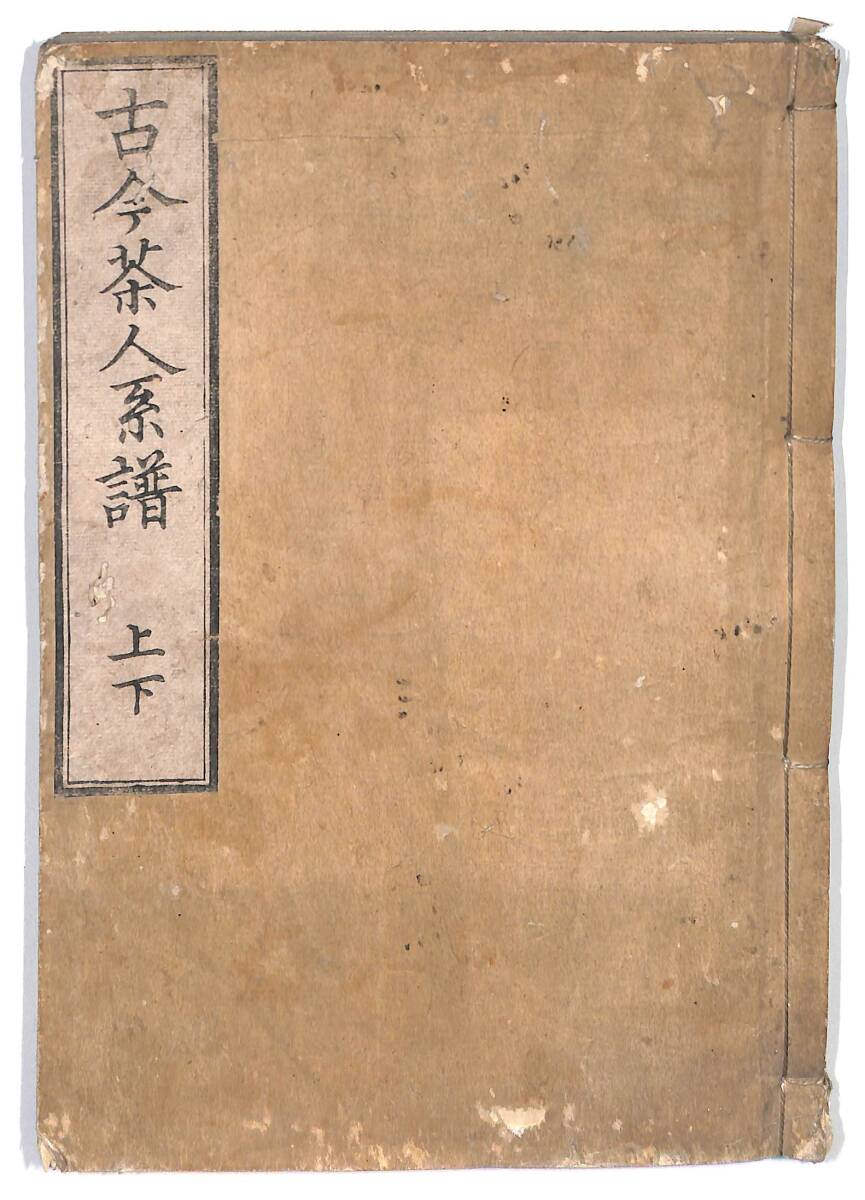 古今茶人系譜 上下